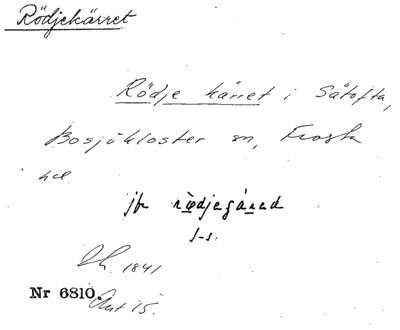 Rödjekärret
Rödje kärret i Sätofta,
Bosjökloster sn, Frosta
hd.
jfr rödjegáred
s-s.
Sk. 1841
Nr 6810. Ant 15.